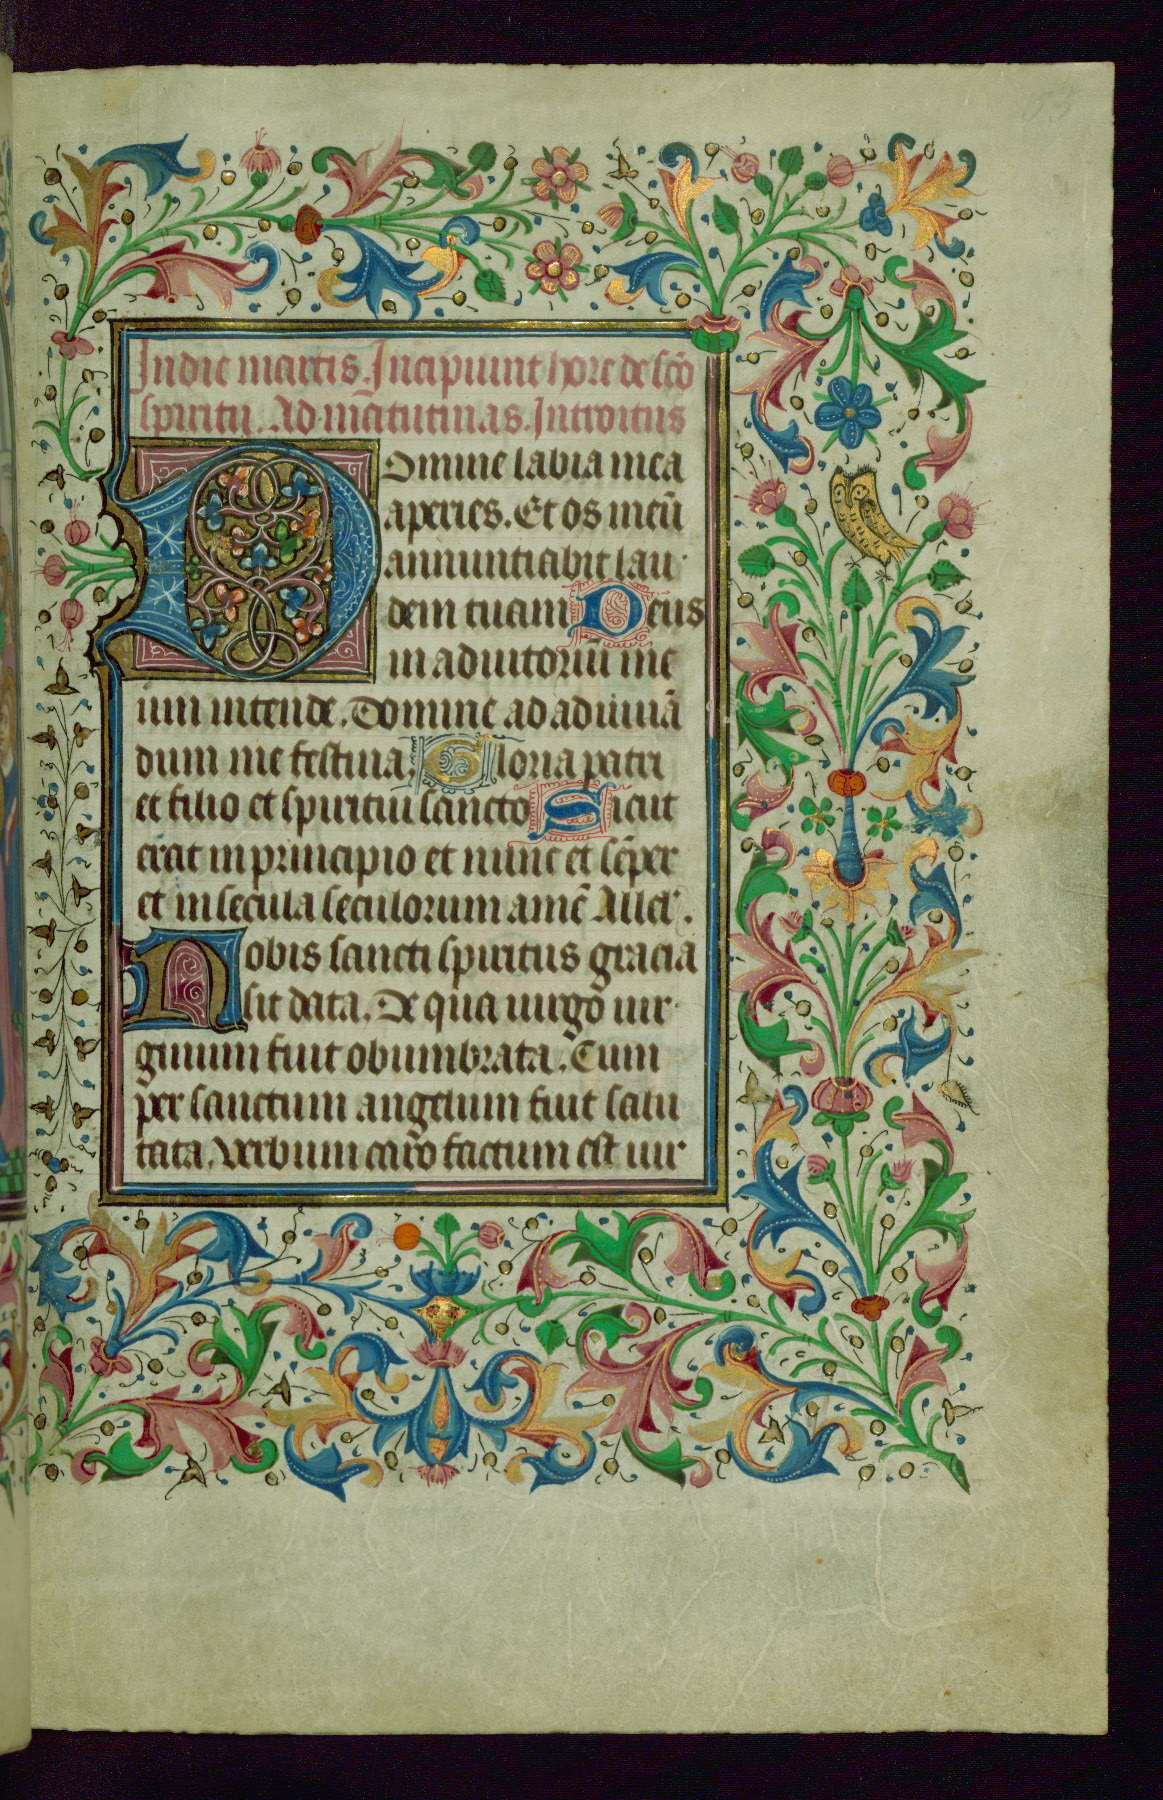 In die martis. Incipiunt hore de scō
spiritu. Ad matutinas. Introitus
Domine labia mea
aperies. Et os meū
annunticabit lau
dem tuam Deus
in adiutoriū me
um intende. Domine ad adiuuā
dum me festina. Gloria patri
et filio et spiritui sancto Sicut
erat in principio et nunc et sēper
et in secula seculorum amē Allel'.
Nobis sancti spiritus gracia
sit data. De qua uirgo uir
ginum fuit obumbrata. Cum
per sanctum angelum fuit salu
tata. Verbum caro factum est uir